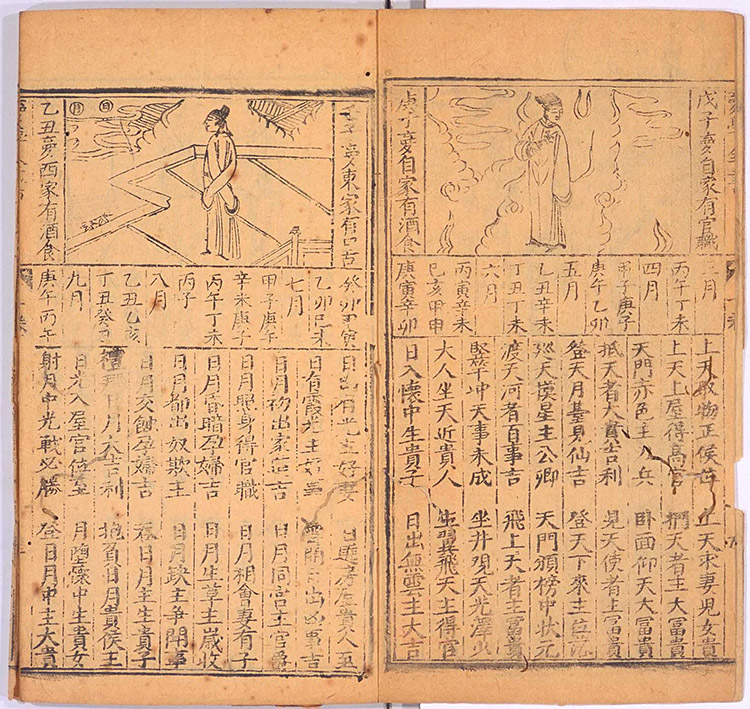 戊子夢自家有官職
庚子夢自家有酒食
月
丙午丁未
四月
甲子庚子
庚午乙卯
五月
乙丑辛未
丁丑丁未
六月
丙寅辛未
己亥甲申
庚寅辛卯
上天取物王侯位 上天求妻兒女貴
上天上屋得高官 天者主大富貴
天門赤色主兵 臥面仰天大富貴
抵天者大富吉利 見天使者主富貴
登天月基見仙吉 登天下來主位
天漢星主公卿 天門牓中狀元
渡天河者百事吉 飛上天者主富貴
天事未成 坐井觀天光澤少
大人坐天近貴人 生翼飛天主得官
日入懷中生貴子 日出無雲主大吉
子夢東家有口舌
日
月
乙丑夢西家有酒食
癸卯甲寅
乙卯己未
七月
甲子庚午
辛未庚子
丙午丁未
丙子
八月
乙丑乙亥
丁丑癸
九月
庚午丙午
日出有光主好妻
日有霞光主好事 雲開日出凶事吉
日月初出家道吉 日月同宮主官爵
日月照身得官職 日月相會妻有子
日月昏暗孕婦吉 日月生草主歲收
日月都出奴欺主 日月缺主爭鬧事
日月交蝕孕婦吉 吞日月主生貴子
禮拜日月大吉利 抱負日月貴侯王
日光入屋官位至 月墮懷中生貴女
射月中光戰必勝 登日月中主大貴